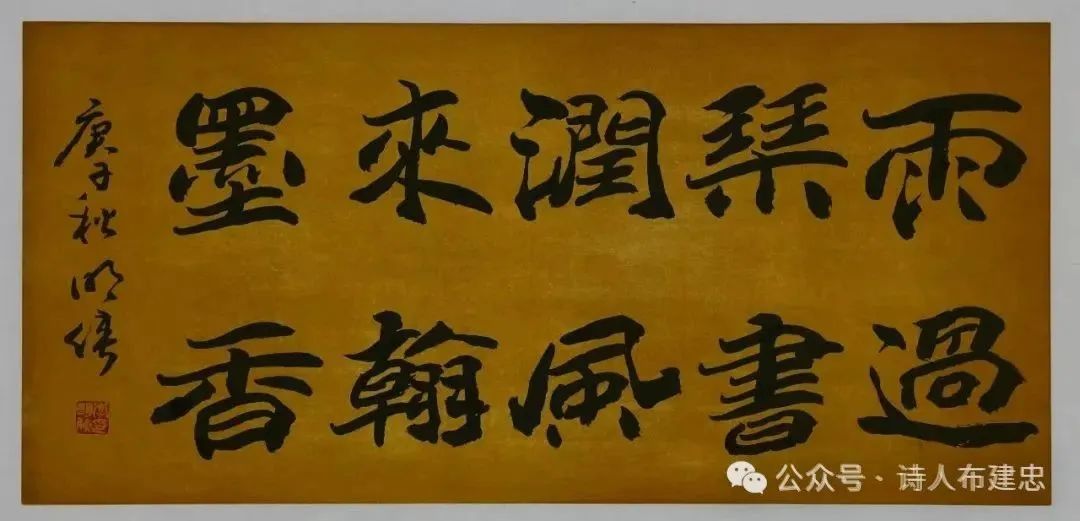 雨過
琴書
潤風
來翰
墨香
庚子秋明俊
公众号·诗人布建忠